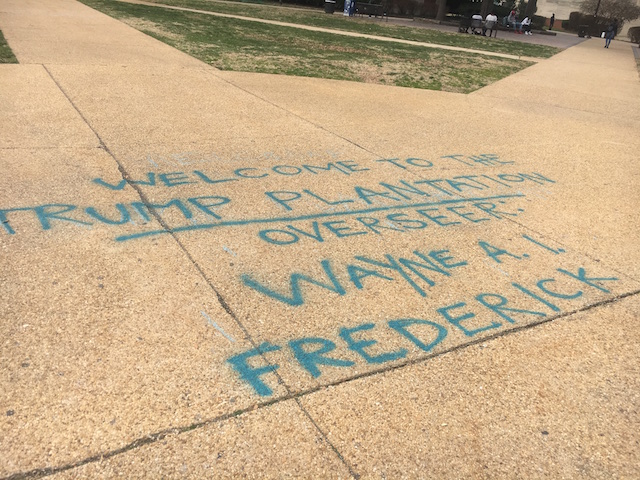 WELCOME TO THE
TRUMP PLANTATION
OVERSEER:
WAYNE A. I.
FREDERICK